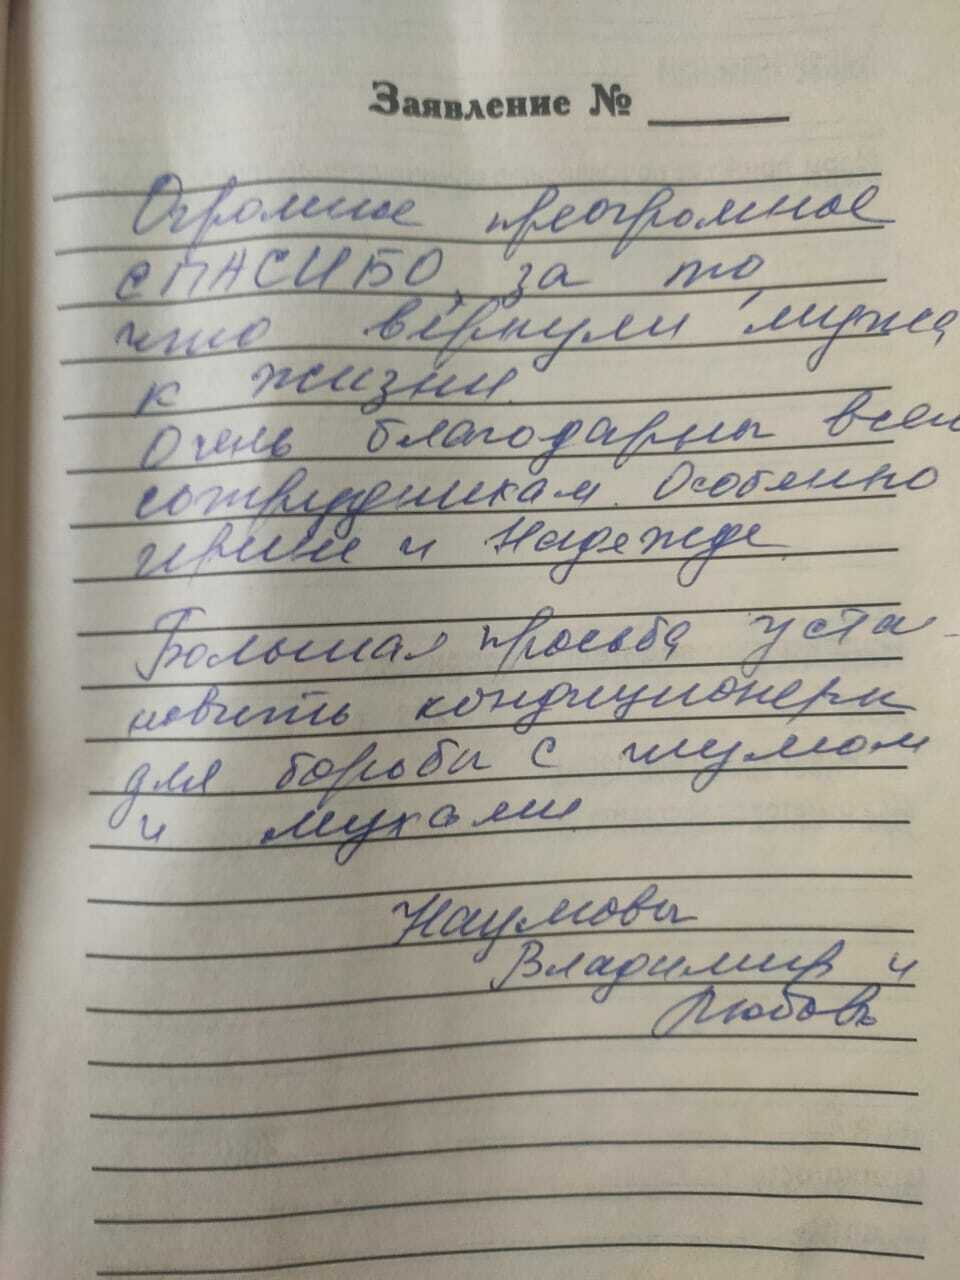 Заявление № ____
Огромное преогромное
СПАСИБО за то,
что вернули мужа
к жизни.
Очень благодарны всем
сотрудникам. Особенно
Ирине и Надежде.
Большая просьба уста-
новить кондиционеры
для борьбы с шумом
и мухами.
Наумовы
Владимир и
Любовь